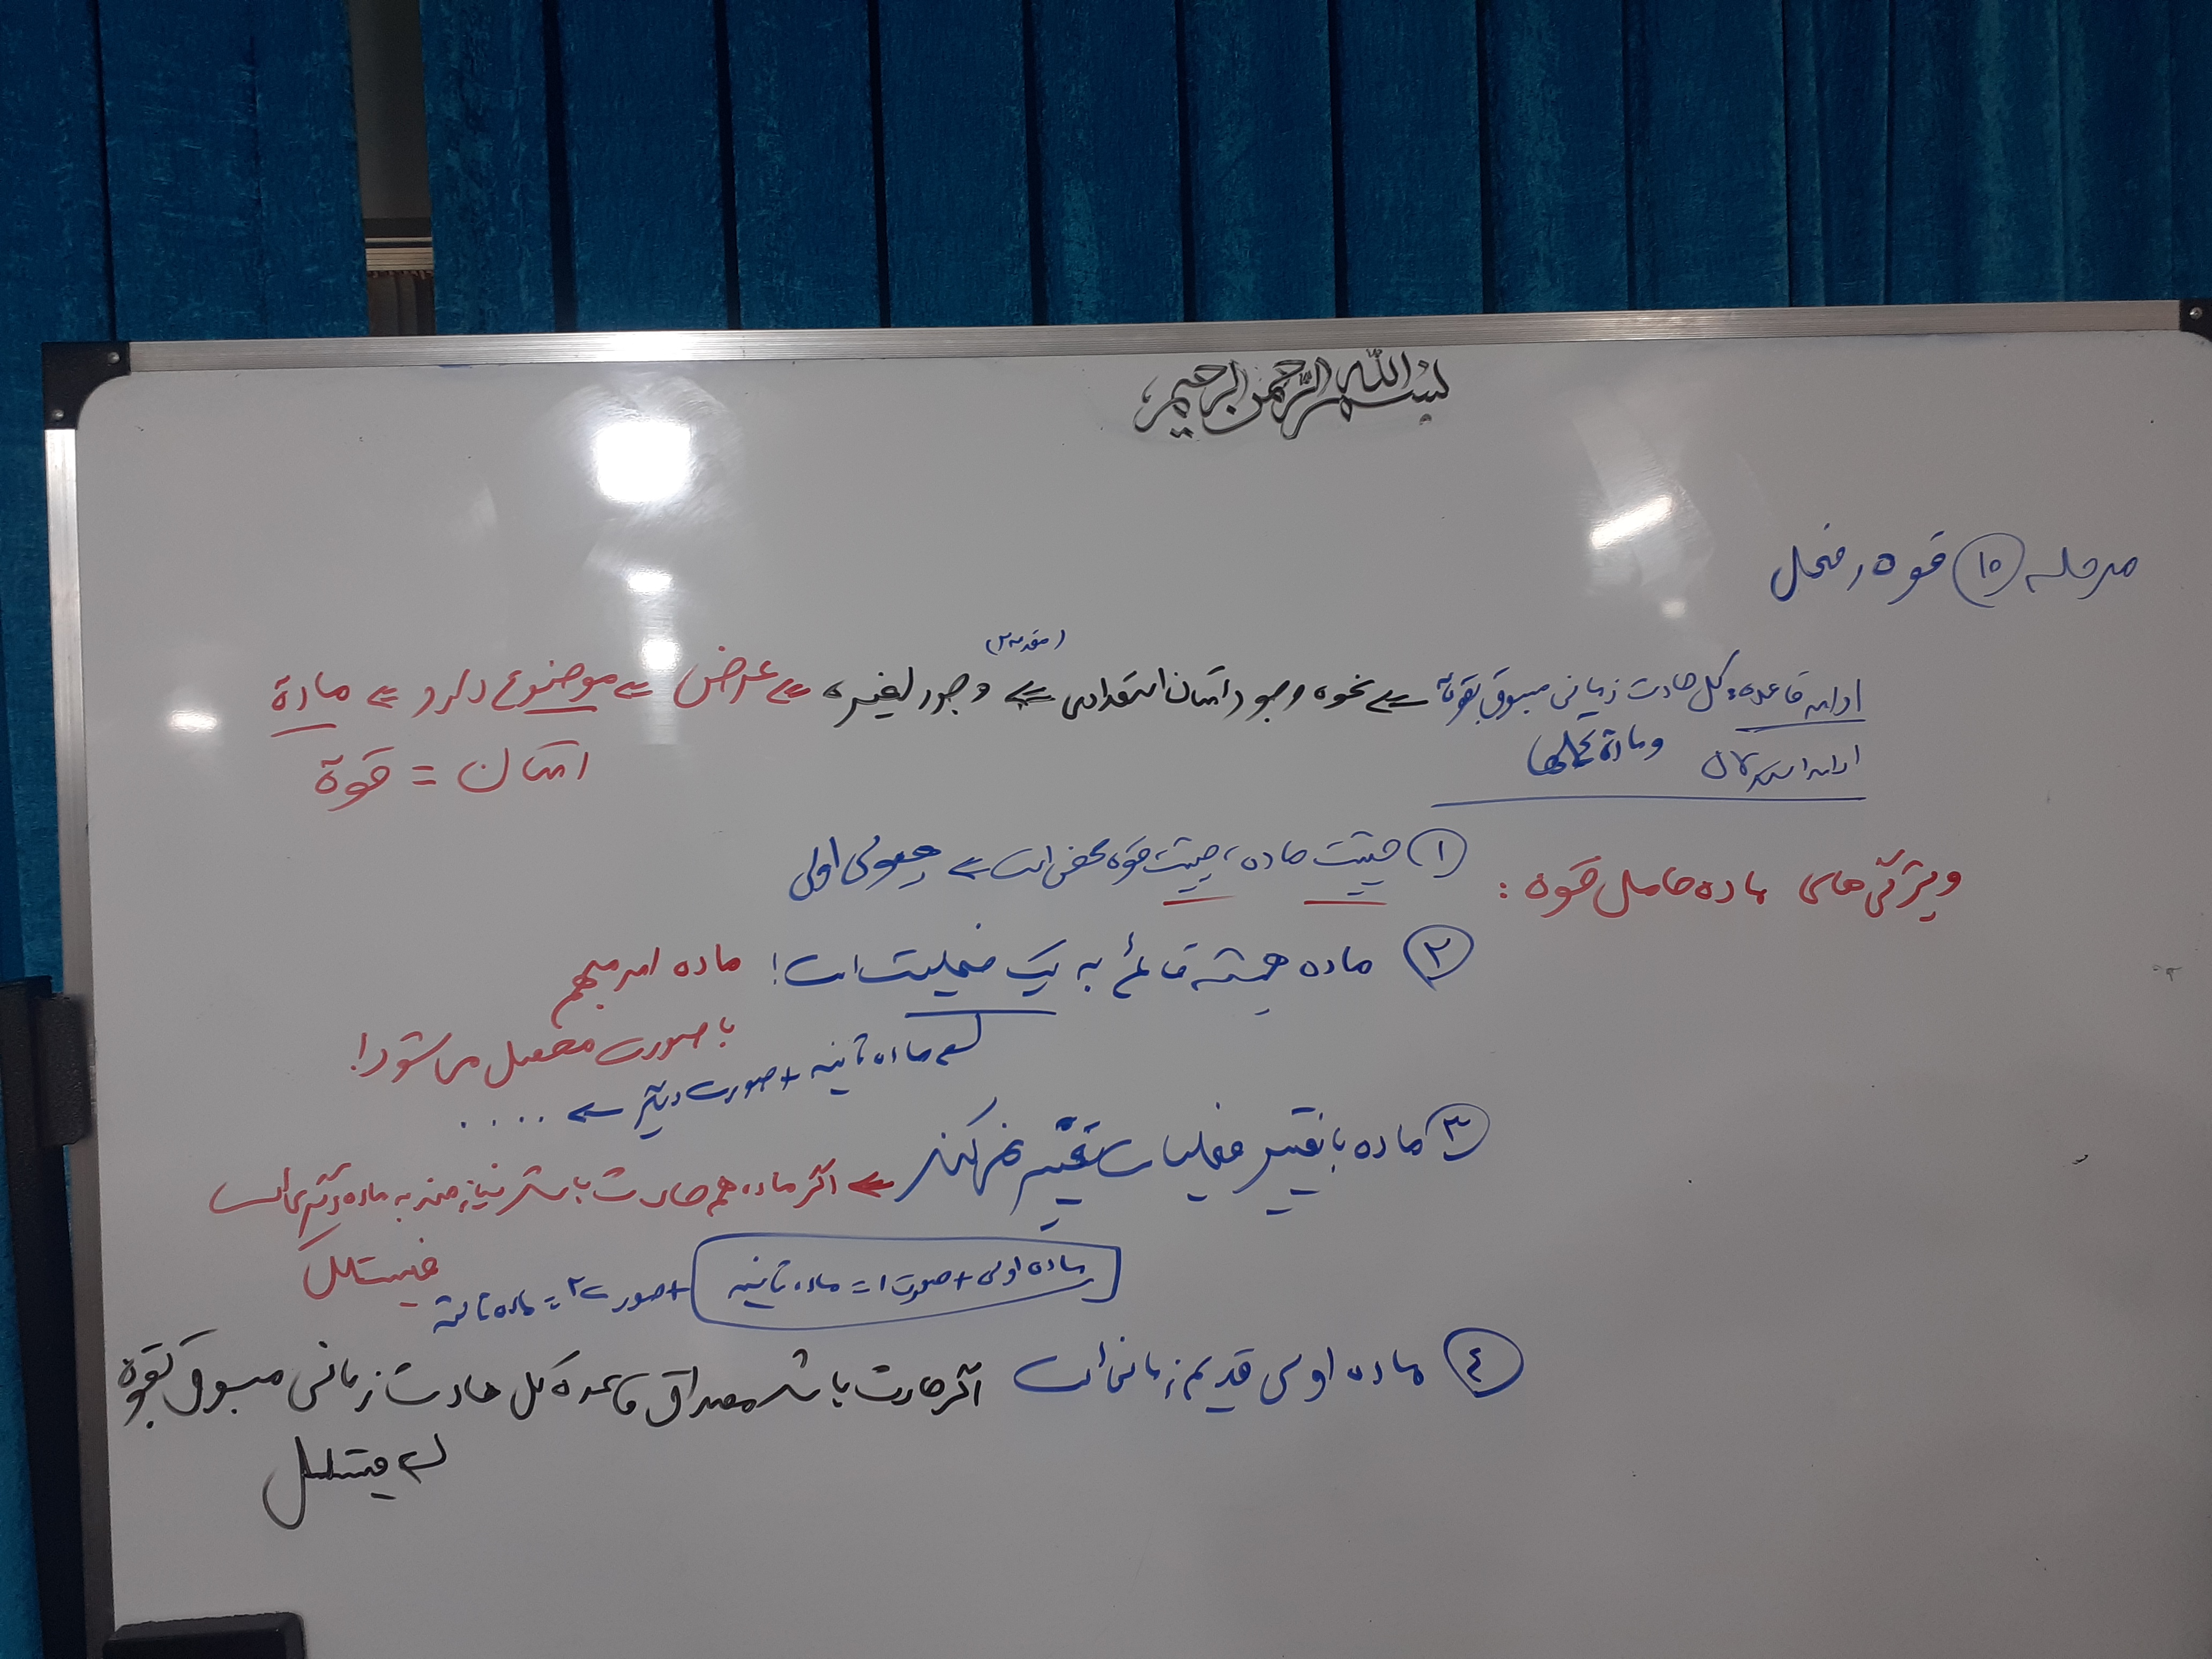 بسم الله الرحمن الرحیم
مرحله ۱۰ قوه و فعل
(مقدمه ۲)
ادامه قاعده: کل حادث زمانی مسبوق بقوة ⇐ نحوه وجود امکان استعدادی ⇐ وجود لغیره ⇐ عرض ⇐ موضوع دارد ⇐ مادة
ادامه استدلال ومادة تحملها
امکان = قوة
ویژگی های ماده حامل قوه :
۱ حیثیت ماده، حیثیت قوه محض است ⇐ هیولی اولی
۲ ماده همیشه قائم به یک فعلیت است! ماده امر مبهم
با صورت محصل می شود!
ماده ثانیه + صورت دیگر ⇐ ....
۳ ماده با تغییر فعلیات تغییر نمی کند ⇐ اگر ماده هم حادث باشد نیازمند به ماده دیگری است
فیتسلسل
ماده اولی + صورت ۱ = ماده ثانیه + صورت ۲ = ماده ثالثه
٤ ماده اولی قدیم زمانی است اگر حادث باشد مصداق قاعده کل حادث زمانی مسبوق بقوة
فیتسلسل